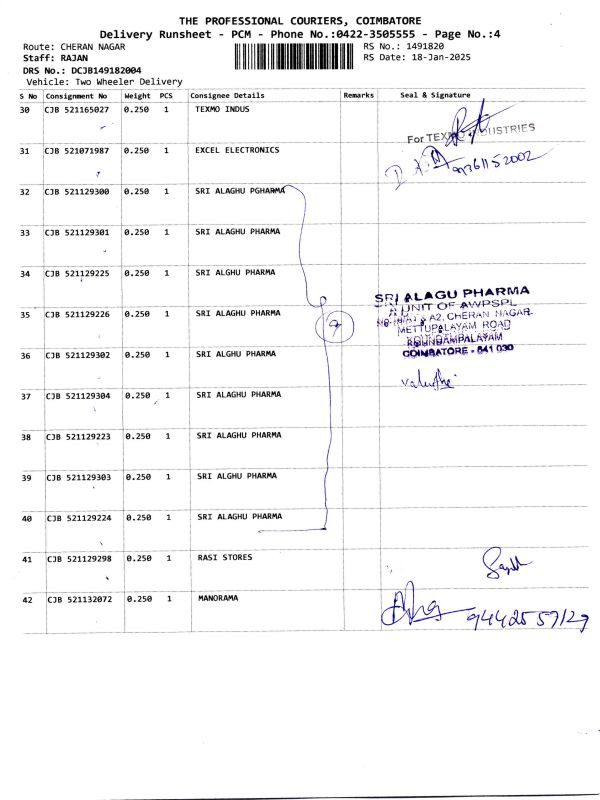 THE PROFESSIONAL COURIERS, COIMBATORE
Delivery Runsheet - PCM - Phone No.:0422-3505555 - Page No.:4
Route: CHERAN NAGAR RS No.: 1491820
Staff: RAJAN RS Date: 18-Jan-2025
DRS No.: DCJB149182004
Vehicle: Two Wheeler Delivery
S No Consignment No Weight PCS Consignee Details Remarks Seal & Signature
30 CJB 521165027 0.250 1 TEXMO INDUS
For TEXMO INDUSTRIES
31 CJB 521071987 0.250 1 EXCEL ELECTRONICS
9361152002
32 CJB 521129300 0.250 1 SRI ALAGHU PGHARMA
33 CJB 521129301 0.250 1 SRI ALAGHU PHARMA
34 CJB 521129225 0.250 1 SRI ALGHU PHARMA
SRI ALAGU PHARMA
A UNIT OF AWPSPL
35 CJB 521129226 0.250 1 SRI ALAGHU PHARMA
9
A2, CHERAN NAGAR.
METTUPALAYAM ROAD
KOUNDAMPALAYAM
COIMBATORE - 641 030
36 CJB 521129302 0.250 1 SRI ALGHU PHARMA
37 CJB 521129304 0.250 1 SRI ALAGHU PHARMA
38 CJB 521129223 0.250 1 SRI ALAGHU PHARMA
39 CJB 521129303 0.250 1 SRI ALGHU PHARMA
40 CJB 521129224 0.250 1 SRI ALAGHU PHARMA
41 CJB 521129298 0.250 1 RASI STORES
42 CJB 521132072 0.250 1 MANORAMA
9442559129